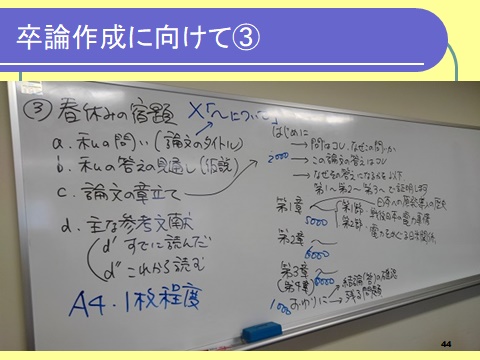 卒論作成に向けて③
③ 春休みの宿題 ×「〜について」
a. 私の問い(論文のタイトル)
b. 私の答えの見通し(仮説)
c. 論文の章立て
d. 主な参考文献
d' すでに読んだ
d" これから読む
A4・1枚程度
はじめに
→ 問はコレ、なぜこの問いか
2000 → この論文の答えはコレ
→ なぜその答えになるかを以下
第1〜第2〜第3へで証明します
第1章 第1節 日本への原発導入の歴史
5000 第2節 戦後日本の電力事情
電力をめぐる日米関係
第2章 〜
6000
第3章 〜
(第4章) 6000
1000 おわりに → 結論(答)の確認
→ 残る問題
44